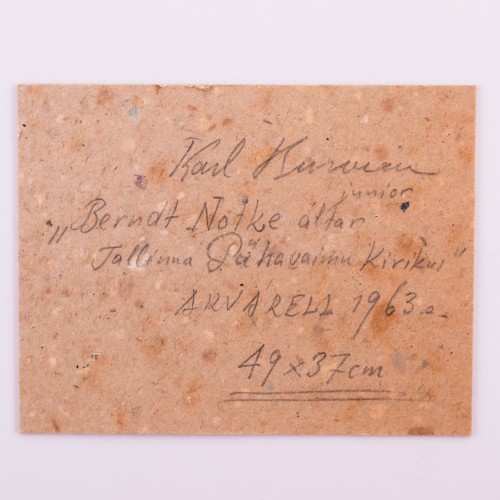 Karl Burman
junior
„Berndt Notke altar
Tallinna Pühavaimu Kirikus"
AKVARELL 1963.a.
49x37cm